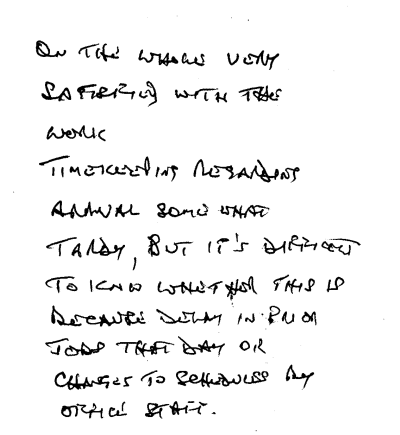 ON THE WHOLE VERY
SATISFIED WITH THE
WORK
TIMEKEEPING REGARDING
ARRIVAL SOMEWHAT
TARDY, BUT IT'S DIFFICULT
TO KNOW WHETHER THIS IS
BECAUSE DELAY IN PRIOR
JOBS THAT DAY OR
CHANGES TO SCHEDULES BY
OFFICE STAFF.